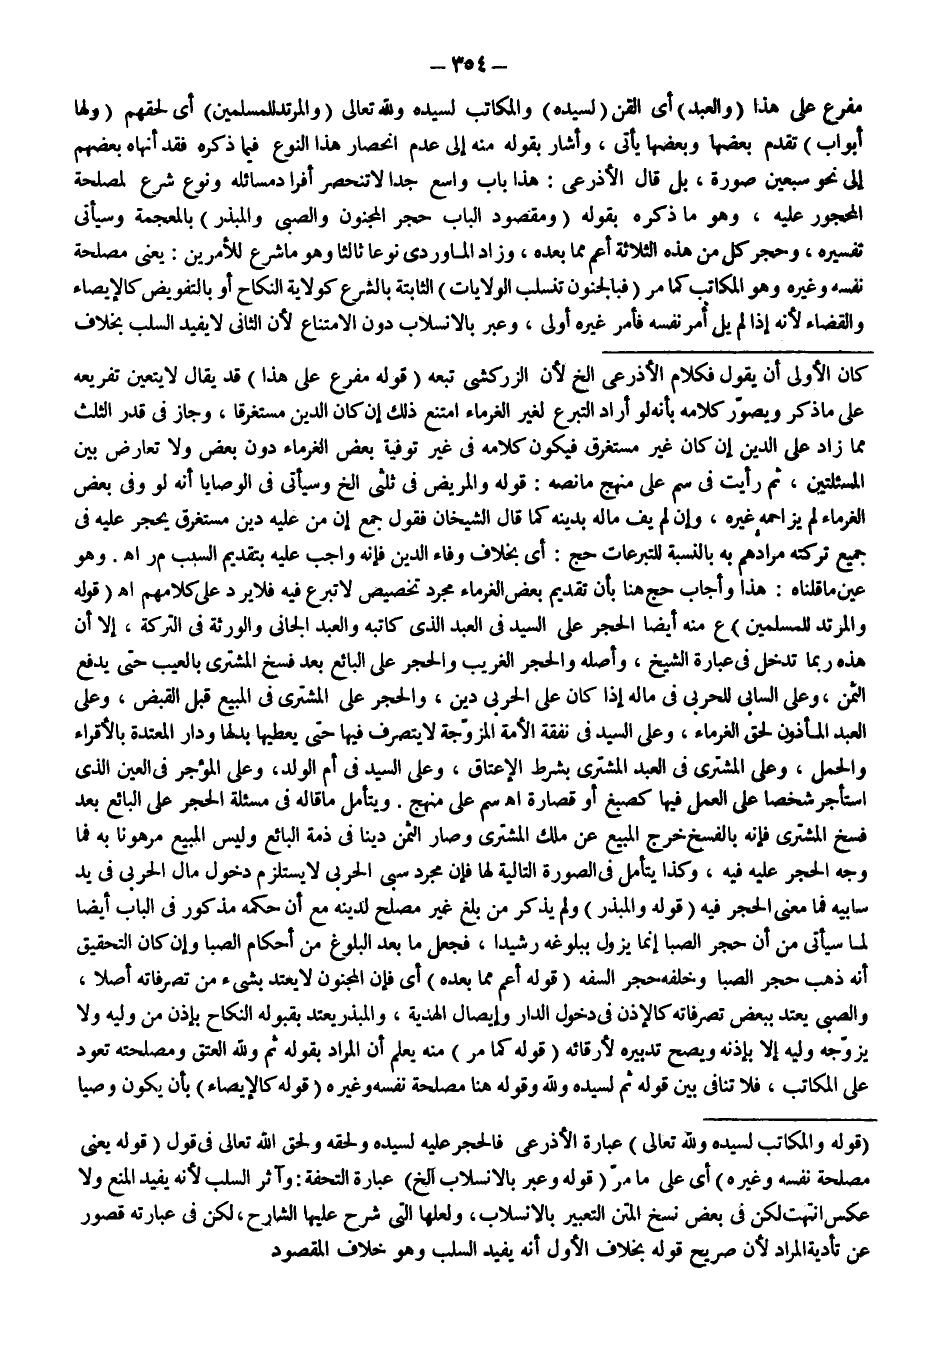 — ٣٥٤ —
مفرع على هذا (والعبد) أى القن (لسيده) والمكاتب لسيده ولله تعالى (والمرتد للمسلمين) أى لحقهم (ولها
أبواب) تقدم بعضها وبعضها يأتى ، وأشار بقوله منه إلى عدم انحصار هذا النوع فيما ذكره فقد أنهاه بعضهم
إلى نحو سبعين صورة ، بل قال الأذرعى : هذا باب واسع جدا لاتنحصر أفراد مسائله ونوع شرع لمصلحة
المحجور عليه ، وهو ما ذكره بقوله (ومقصود الباب حجر المجنون والصبى والمبذر) بالمعجمة وسيأتى
تفسيره ، وحجر كل من هذه الثلاثة أعم مما بعده ، وزاد المـاوردى نوعا ثالثا وهو ماشرع للأمرين : يعنى مصلحة
نفسه وغيره وهو المكاتب كما مر (فبالجنون تنسلب الولايات) الثابتة بالشرع كولاية النكاح أو بالتفويض كالإيصاء
والقضاء لأنه إذا لم يل أمر نفسه فأمر غيره أولى ، وعبر بالانسلاب دون الامتناع لأن الثانى لايفيد السلب بخلاف
كان الأولى أن يقول فكلام الأذرعى الخ لأن الزركشى تبعه (قوله مفرع على هذا) قد يقال لايتعين تفريعه
على ماذكر ويصوّر كلامه بأنه لو أراد التبرع لغير الغرماء امتنع ذلك إن كان الدين مستغرقا ، وجاز فى قدر الثلث
مما زاد على الدين إن كان غير مستغرق فيكون كلامه فى غير توفية بعض الغرماء دون بعض ولا تعارض بين
المسئلتين ، ثم رأيت فى سم على منهج مانصه : قوله والمريض فى ثلثى الخ وسيأتى فى الوصايا أنه لو وفى بعض
الغرماء لم يزاحمه غيره ، وإن لم يف ماله بدينه كما قال الشيخان فقول جمع إن من عليه دين مستغرق يحجر عليه فى
جميع تركته مرادهم به بالنسبة للتبرعات حج : أى بخلاف وفاء الدين فإنه واجب عليه بتقديم السبب م ر اه . وهو
عين ماقلناه : هذا وأجاب حج هنا بأن تقديم بعض الغرماء مجرد تخصيص لاتبرع فيه فلا يرد على كلامهم اه (قوله
والمرتد للمسلمين) ع منه أيضا الحجر على السيد فى العبد الذى كاتبه والعبد الجانى والورثة فى التركة ، إلا أن
هذه ربما تدخل فى عبارة الشيخ ، وأصله والحجر الغريب والحجر على البائع بعد فسخ المشترى بالعيب حتى يدفع
الثمن ، وعلى السابى للحربى فى ماله إذا كان على الحربى دين ، والحجر على المشترى فى المبيع قبل القبض ، وعلى
العبد المـأذون لحق الغرماء ، وعلى السيد فى نفقة الأمة المزوّجة لا يتصرف فيها حتى يعطيها بدلها ودار المعتدة بالأقراء
والحمل ، وعلى المشترى فى العبد المشترى بشرط الإعتاق ، وعلى السيد فى أم الولد، وعلى المؤجر فى العين الذى
استأجر شخصا على العمل فيها كصبغ أو قصارة اه سم على منهج . ويتأمل ماقاله فى مسئلة الحجر على البائع بعد
فسخ المشترى فإنه بالفسخ خرج المبيع عن ملك المشترى وصار الثمن دينا فى ذمة البائع وليس المبيع مرهونا به فما
وجه الحجر عليه فيه ، وكذا يتأمل فى الصورة التالية لها فإن مجرد سبى الحربى لا يستلزم دخول مال الحربى فى يد
سابيه فما معنى الحجر فيه (قوله والمبذر) ولم يذكر من بلغ غير مصلح لدينه مع أن حكمه مذكور فى الباب أيضا
لمـا سيأتى من أن حجر الصبا إنما يزول ببلوغه رشيدا ، فجعل ما بعد البلوغ من أحكام الصبا وإن كان التحقيق
أنه ذهب حجر الصبا وخلفه حجر السفه (قوله أعم مما بعده) أى فإن المجنون لايعتد بشىء من تصرفاته أصلا ،
والصبى يعتد ببعض تصرفاته كالإذن فى دخول الدار وإيصال الهدية ، والمبذر يعتد بقبوله النكاح بإذن من وليه ولا
يزوّجه وليه إلا بإذنه ويصح تدبيره لأرقائه (قوله كما مر) منه يعلم أن المراد بقوله ثم ولله العتق ومصلحته تعود
على المكاتب ، فلا تنافى بين قوله ثم لسيده ولله وقوله هنا مصلحة نفسه وغيره (قوله كالإيصاء) بأن يكون وصيا
(قوله والمكاتب لسيده ولله تعالى) عبارة الأذرعى فالحجر عليه لسيده ولحقه ولحق الله تعالى فى قول (قوله يعنى
مصلحة نفسه وغيره) أى على ما مرّ (قوله وعبر بالانسلاب الخ) عبارة التحفة : وآثر السلب لأنه يفيد المنع ولا
عكس انتهت لكن فى بعض نسخ المتن التعبير بالانسلاب، ولعلها التى شرح عليها الشارح، لكن فى عبارته قصور
عن تأدية المراد لأن صريح قوله بخلاف الأول أنه يفيد السلب وهو خلاف المقصود